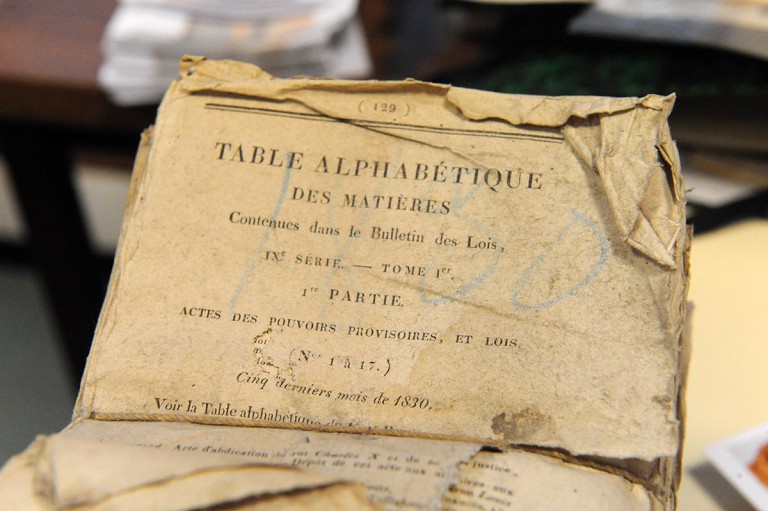 ( 129 )
TABLE ALPHABÉTIQUE
DES MATIÈRES
Contenues dans le Bulletin des Lois,
IXe SÉRIE. — TOME Ier.
1re PARTIE.
ACTES DES POUVOIRS PROVISOIRES, ET LOIS.
(Nos 1 à 17.)
Cinq derniers mois de 1830.
Voir la Table alphabétique
Acte d'abdication du roi Charles X et de
Dépôt de cet acte aux